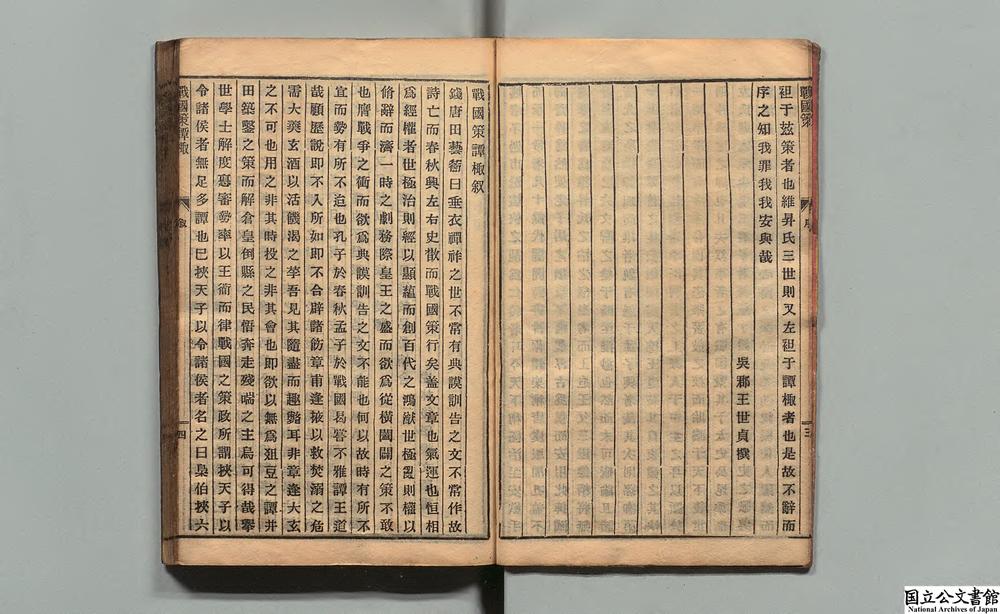 戰國策
序
三
袒于茲策者也維昇氏三世則又左袒于譚棷者也是故不辭而
序之知我罪我我安與哉
吳郡王世貞撰
戰國策譚棷叙
錢唐田藝蘅曰垂衣禪祚之世不常有典謨訓告之文不常作故
詩亡而春秋興左右史散而戰國策行矣盖文章也氣運也恒相
爲經權者世極治則經以顯蘊而創百代之鴻猷世極亂則權以
脩辭而濟一時之劇務際皇王之盛而欲爲從橫闔闢之策不敢
也膺戰爭之衝而欲爲典謨訓告之文不能也何以故時有所不
宜而勢有所不迨也孔子於春秋孟子於戰國曷嘗不雅譚王道
哉顧歷說即不入所如即不合辟諸飭章甫逢掖以救焚溺之危
需大羹玄酒以活饑渴之莩吾見其隨盡而趣斃耳非章逢大玄
之不可也用之非其時投之非其會也即欲以無爲俎豆之譚井
田築鑿之策而解倉皇倒縣之民悟奔走殘喘之主烏可得哉擧
世學士解度審勢率以王衜而律戰國之策政所謂挾天子以
令諸侯者無足多譚也巳挾天子以令諸侯者名之曰梟伯挾六
戰國策譚棷
叙
四
国立公文書館
National Archives of Japan